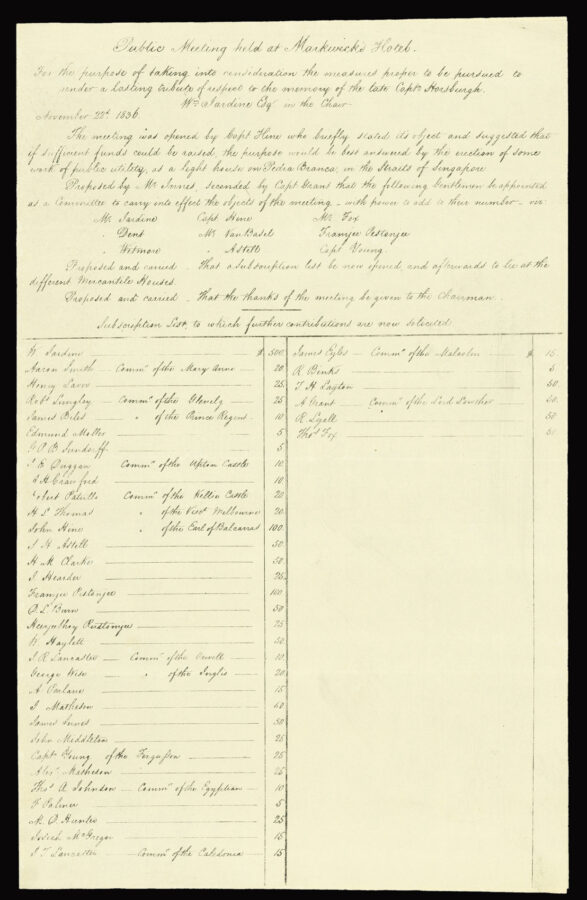 Public Meeting held at Markwick's Hotel.
For the purpose of taking into consideration the measures proper to be pursued to
render a lasting tribute of respect to the memory of the late Captn Horsburgh.
Wm Jardine Esqr in the Chair
November 22d 1836
The meeting was opened by Capt Hine who briefly stated its object and suggested that
if sufficient funds could be raised, the purpose would be best answered by the erection of some
work of public utility, as a light house on Pedra Branca, in the Straits of Singapore
Proposed by Mr Innes, seconded by Capt Grant that the following Gentlemen be appointed
as a Committee to carry into effect the objects of the meeting - with power to add to their number - viz:
Mr Jardine Capt Hine Mr Fox
" Dent Mr Van Basel Framjee Pestonjee
" Wetmore " Astell Capt Young
Proposed and carried - That a Subscription list be now opened, and afterwards to lie at the
different Mercantile Houses
Proposed and carried - That the thanks of the meeting be given to the Chairman
Subscription List, to which further contributions are now solicited
W Jardine $ 500
Aaron Smith - Commr of the Mary Anne 20
Henry 25
Robt Langley - Commr of the Glenelg 25
James Biles " of the Prince Regent 10
Edmund Moller 5
5
J E Duggan Commr of the Upton Castle 10
J H Crawford 10
Robert Patullo Commr of the Kellie Castle 20
H L Thomas " of the Visct Melbourne 20
John Hine " of the Earl of Balcarras 100
J H Astell 50
H M Clarke 50
J Hearder 25
Framjee Pestonjee 100
D L Burn 50
Heerjeebhoy Rustomjee 25
W Haylett 50
J R Lancaster - Commr of the Orwell 10
George Wise " of the Inglis 20
A 15
J Matheson
James Innes 50
John Middleton 25
Captn Young of the Fergusson 25
Alexr Matheson 25
Thos A Johnson - Commr of the Egyptian 10
F Palmer 5
W C Hunter 25
Josiah McGregor 15
J T Lancaster Commr of the Caledonia 15
James Eyles - Commr of the Malcolm $ 15
R Binks 5
T H Layton 50
A Grant Commr of the Lord Lowther 50
R Lyall 50
Thos Fox 50